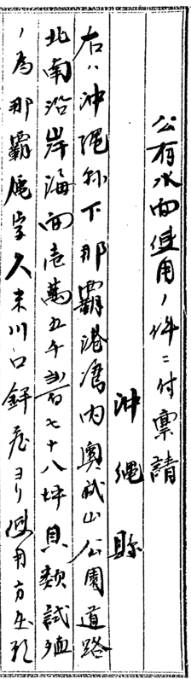 公有水面使用ノ件ニ付稟請
沖縄縣
右ハ沖縄縣下那覇港湾内奥武山公園道路
北南沿岸海面壱萬五千 百七十八坪貝類試殖
ノ為那覇 字久米 ヨリ使用方出願